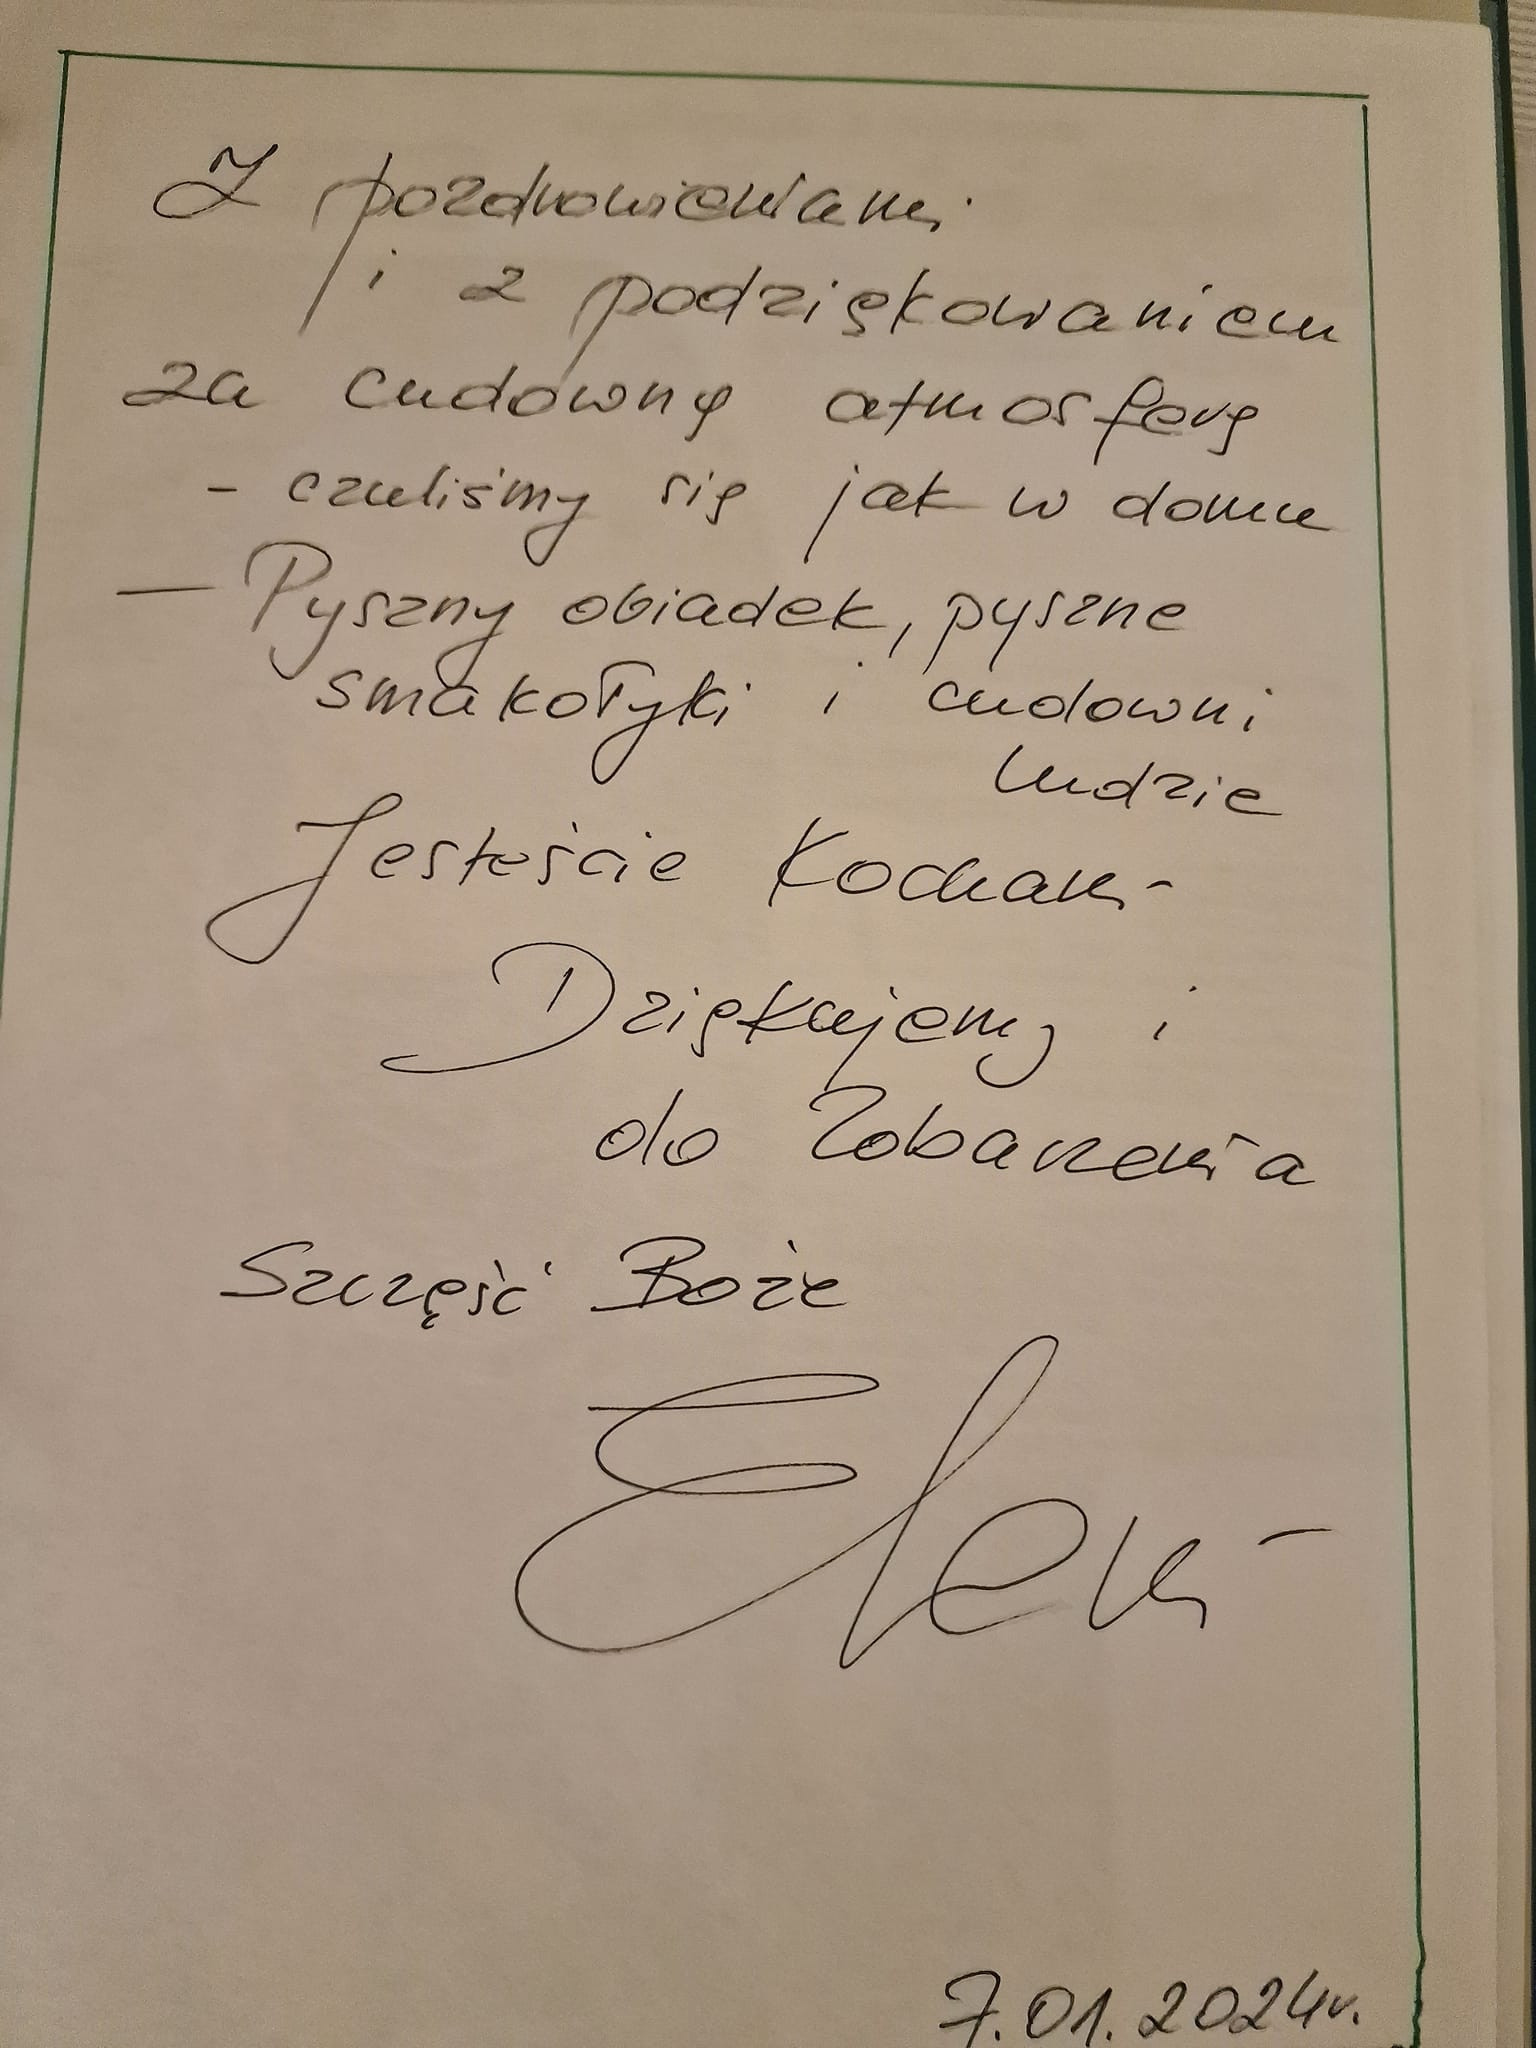 Z pozdrowieniami
i z podziękowaniem
za cudowną atmosferę
- czuliśmy się jak w domu
- Pyszny obiadek, pyszne
smakołyki i cudowni
ludzie
Jesteście Kochani
Dziękujemy i
do Zobaczenia
Szczęść Boże
Eleni
7.01.2024r.